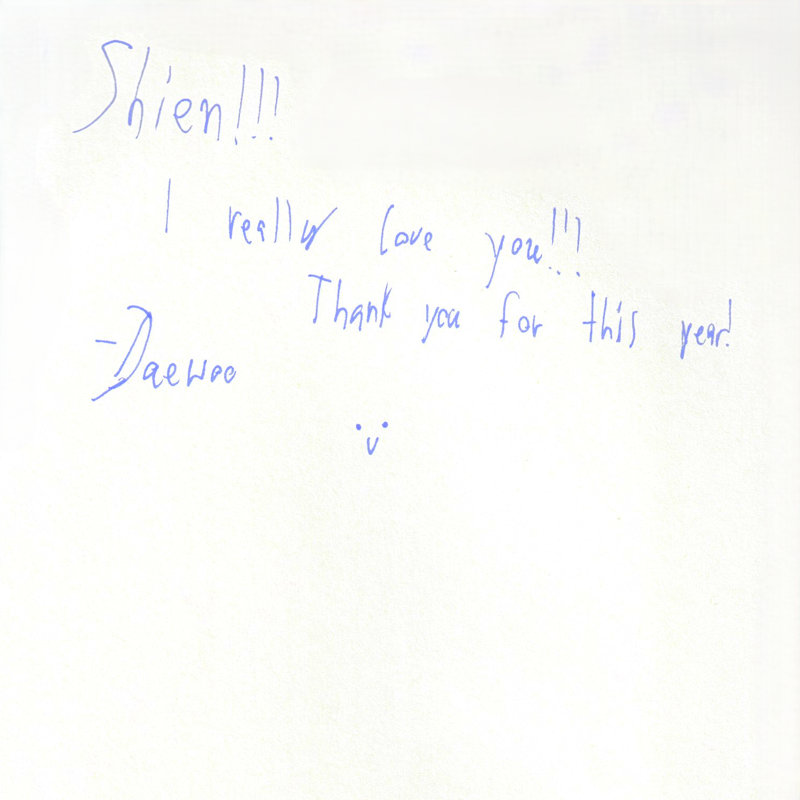 Shien!!!
I really love you!!!
Thank you for this year!
-Daewoo